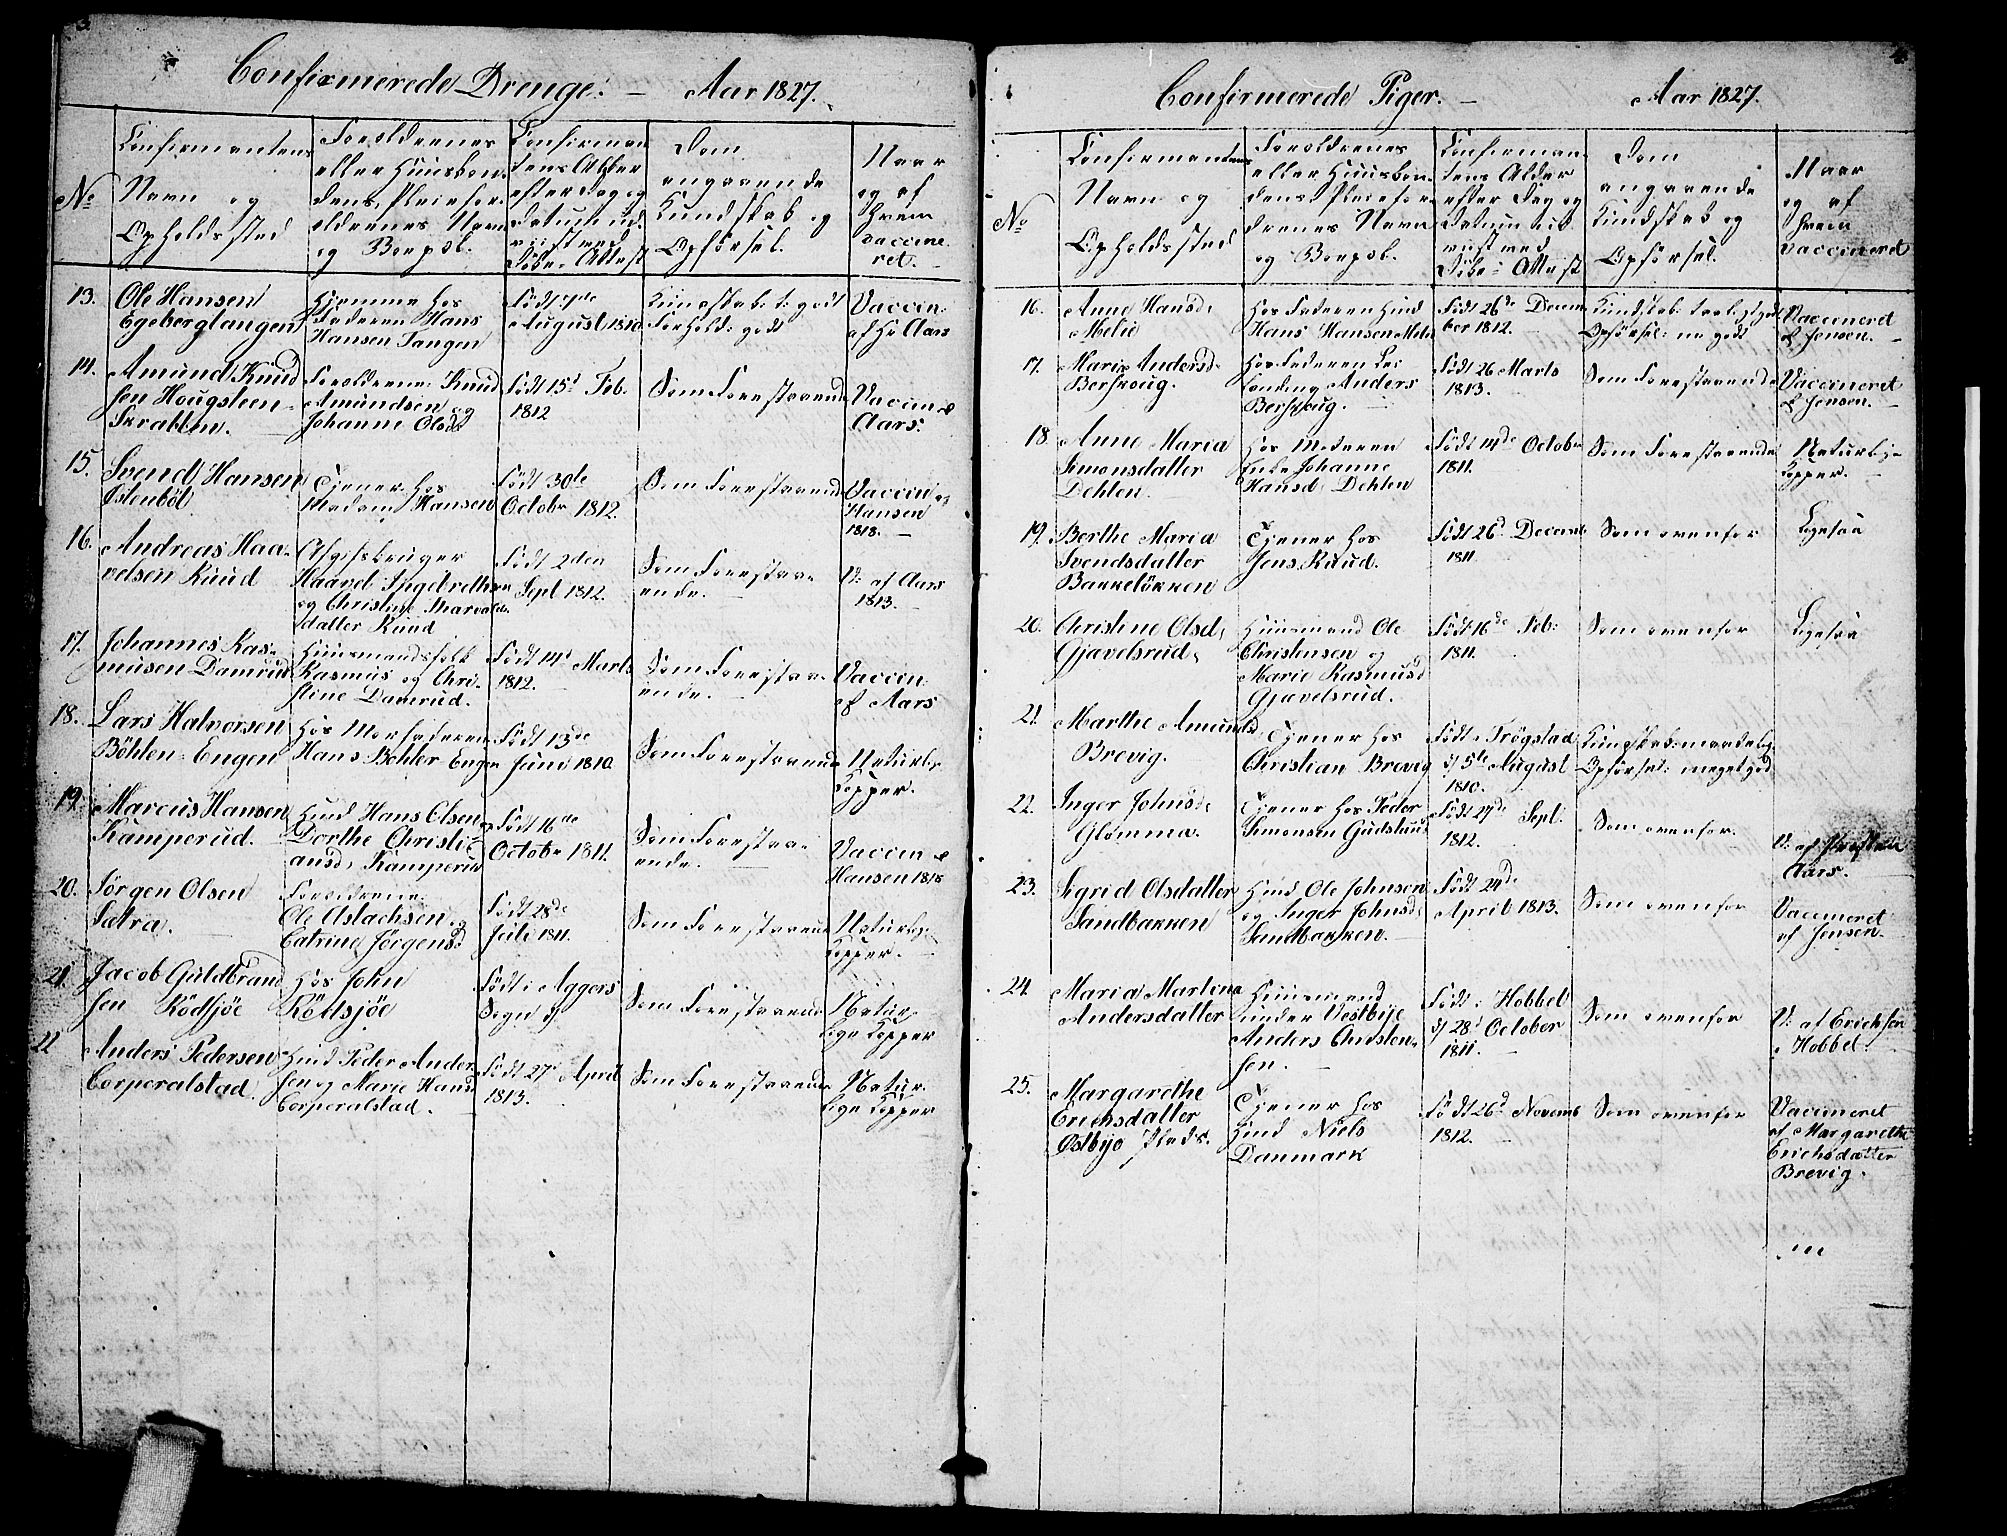 3.
Confirmerede Drenge. — Aar 1827.
No
Confirmantens
Navn og
Opholdssted
Forældrenes
eller Huusbon-
dens, Pleiefor-
ældrenes Navn
og Boepæl.
Confirman
tens Alder
efter Dag og
Datum ud-
viist ved
Døbe-Attest
Dom
angaaende
Kundskab og
Opførsel.
Naar
og af
hvem
vaccine
ret.
13.
Ole Hansen
Egeberglangen
Hjemme hos
Faderen Hans
Hansen Tangen
Født 7de
August 1810
Kundskab: t: godt
Forhold: godt
Vaccin:
af Hr Aars
14.
Amund Knud
sen Hougsteen
Skrabben.
Forældrene: Knud
Amundsen og
Johanne Olsd
Født 15d Feb.
1812
Som Forestaaende
Vaccin
Aars.
15.
Svend Hansen
Østenböl
Tjener hos
Madam Hansen
Født 30te
Octobr 1812.
Som Forestaaende
Vaccin
Hansen
1818. —
16.
Andreas Haa-
velsen Ruud
Haavel Ingebrethsen
og Christine
datter Ruud
Født 2den
Sept 1812.
Som Forestaa-
ende.
V: af Aars
1813. —
17.
Johannes Ras-
musen Damrud
Huusmandsfolk
Rasmus og Chri-
stine Damrud.
Født 14d Marts
1812. —
Som Forestaa-
ende. —
Vaccin:
af Aars
18.
Lars Halvorsen
Böhlen: Engen
Hos Morfaderen
Hans Böhler Engen
Født 13de
Juni 1810.
Som Forestaaende
Naturl:
Kopper. —
19.
Marcus Hansen
Kamperud. —
Huusd Hans Olsen
Dorthe Christi-
ansd, Kamperud
Født 16de
Octobr 1811.
Som Forestaa-
ende. —
Vaccin
Hansen 1818
20.
Jörgen Olsen
Sætra.
Forældrene
Ole Aslachsen og
Catrine Jørgensd
Født 28de
Juli 1811.
Som Forestaaende
Naturlig-
Kopper. —
21.
Jacob Guldbrand
sen Rödsjöe
Hos John
Rödtsjöe
Født i Aggers
Sogn d
Som Forestaaende
Natur-
lige Kopper
22
Anders Pedersen
Corporalstad.
Huusd Peder Ander
sen og Marie Hansd
Corporalstad. —
Født 27d April
1813. —
Som Forestaaende
Natur-
lige Kopper
4.
Confirmerede Piger. — Aar 1827.
No
Confirmantens
Navn og
Opholdssted
Forældrenes
eller Huusbon-
dens Pleiefor-
drenes Navn
og Boepæl.
Confirman-
tens Alder
efter Dag og
Datum ud-
viist ved
Døbe-Attest
Dom
angaaende
Kundskab og
Opførsel.
Naar
og af
hvem
vaccineret
16.
Anne Hansd,
Melie
Hos Faderen Huusd
Hans Hansen Melie
Født 26de Decem
ber 1812. —
Opførsel: m godt
Vaccineret
af Jensen. —
17.
Marie Andersd.
Berskoug.
Hos Faderen
Anders
Berskoug. —
Født 26 Marts
1813. —
Som Forestaaende
Vaccineret
af Jensen. —
18.
Anne Maria
Simonsdatter
Dehlen. —
Hos Moderen
Enke Johanne
Hansd, Dehlen
Født 14de Octobr
1811.
Som Forestaaende
Naturlig-
Kopper. —
19.
Berthe Maria
Svendsdatter
Bakkelökken
Tjener hos
Jens Ruud.
Født 26d Decemb
1811.
Som ovenfor
Ligesaa
20.
Christine Olsd,
Gjavelsrud,
Huusmand Ole
Christensen og
Marie Rasmusd
Gjavelsrud.
Født 16de Feb:
1811.
Som ovenfor
Ligesaa
21.
Marthe Amundsd
Brevig.
Tjener hos
Christian Brevig
Født i Trögstad
d 5te August
1810.
Kundskab: maadelig
Opførsel: meget god
22.
Inger Johnsd,
Glomma.
Tjener hos Peder
Simonsen Gudslund
Født 27de Sept:
1812.
Som ovenfor.
V: af
Aars. —
23.
Sigrid Olsdatter
Sandbakken
Huusd Ole Johnsen
og Inger Johnsd,
Sandbakken. —
Født 24de
April 1813.
Som ovenfor
Vaccineret
af Jensen. —
24.
Maria Martena
Andersdatter
Huusmand
under Vestbÿe
Anders Christen-
sen. —
Født i Hobbel
d 28d October
1811. —
Som ovenfor
V: af Erichsen
i Hobbel
25.
Margarethe
Erichsdatter
Østbÿe Plads.
Tjener hos
Huusd Niels
Danmark
Født 26d Novemb
1812. —
Som ovenfor
Vaccineret
af Margarethe
Erichsdatter
Brevig.